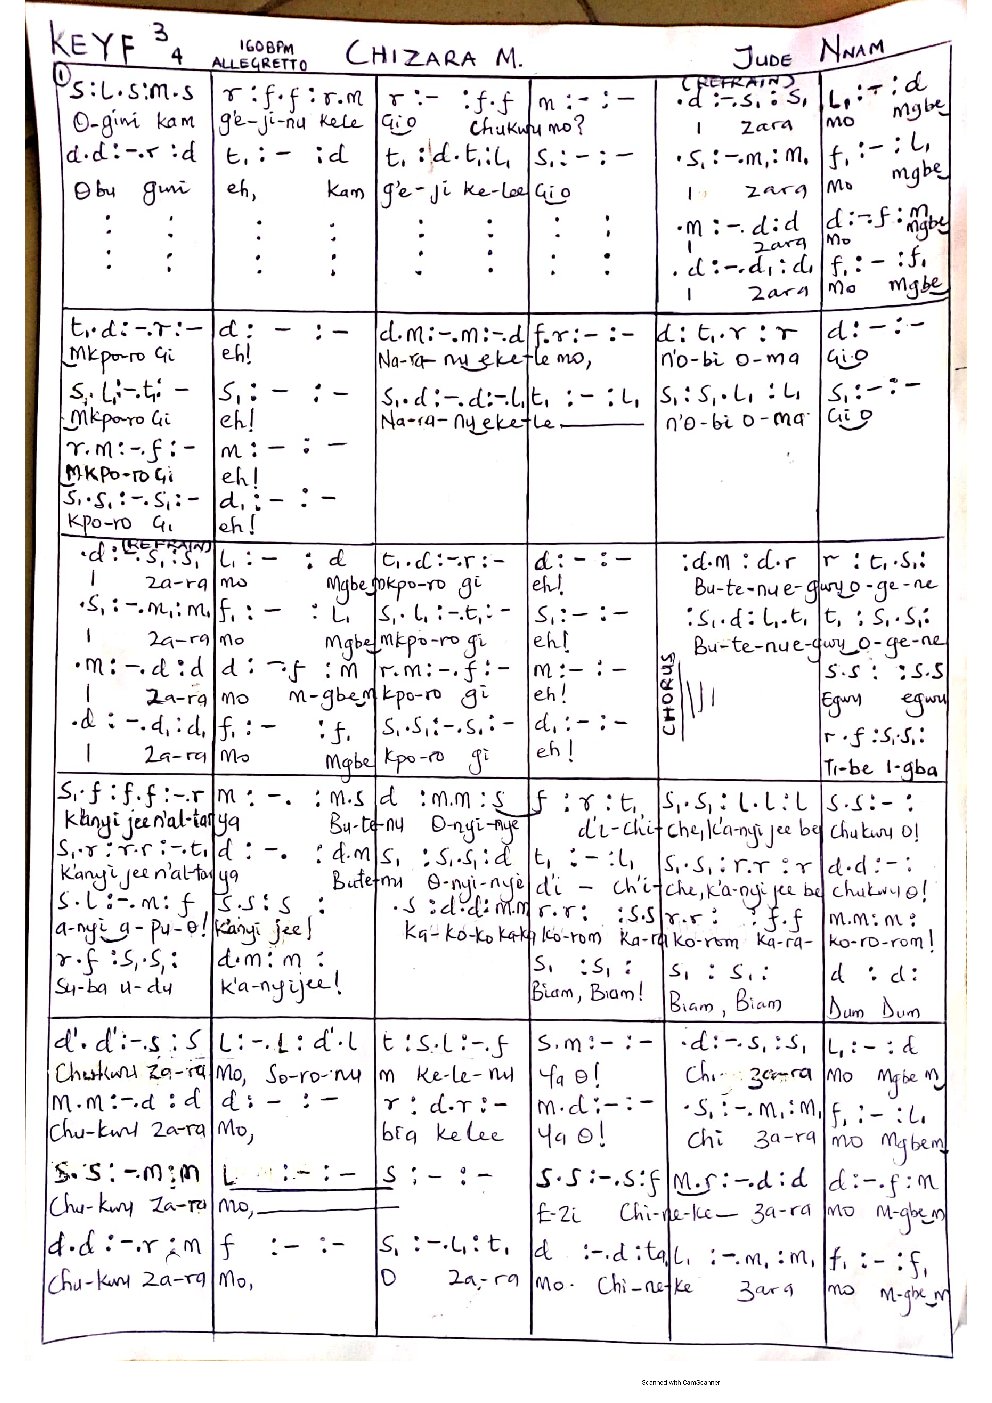 KEY F 3/4 160BPM ALLEGRETTO CHIZARA M. JUDE NNAM
(REFRAIN)
① s:l.s:m.s | r:f.f:r.m | r:- :f.f | m:-:- | .d:-.s₁:s₁ | l₁:-:d
O-gini kam | g'e-ji-nu kele | Gi O Chukwu mo? | I zara | mo Mgbe
d.d:-.r:d | t₁:- :d | t₁:d.t₁:l₁ | s₁:-:- | .s₁:-.m₁:m₁ | f₁:-:l₁
Obu gini | eh, kam | g'e-ji ke-lee | Gi O | I zara | Mo mgbe
: : | : : | : : | : : | .m:-.d:d | d:-.f:m
I zara | Mo Mgbe
: : | : : | : : | : : | .d:-.d₁:d₁ | f₁:-:f₁
I zara | Mo Mgbe
t₁.d:-.r:- | d: - :- | d.m:-.m:-d | f.r:-:- | d:t₁.r:r | d:-:-
Mkpo-ro Gi | eh! | Na-ra-nu eke-le mo, | n'O-bi O-ma | Gi O
s₁.l₁:-.t₁:- | s₁:- :- | s₁.d:-.d:-.l₁ | t₁:-:l₁ | s₁:s₁.l₁:l₁ | s₁:-:-
Mkpo-ro Gi | eh! | Na-ra-ny eke-le | n'O-bi O-ma | Gi O
r.m:-.f:- | m:- :-
MKPO-ro Gi | eh!
s₁.s₁:-.s₁:- | d₁:- :-
Kpo-ro Gi | eh!
(REFRAIN)
.d:-.s₁:s₁ | l₁:- :d | t₁.d:-.r:- | d:-:- | :d.m:d.r | r:t₁.s₁:
I za-ra | mo Mgbe | mkpo-ro gi | eh! | Bu-te-nu e-gwu O-ge-ne
.s₁:-.m₁:m₁ | f₁:- :l₁ | s₁.l₁:-.t₁:- | s₁:-:- | :s₁.d:l₁.t₁ | t₁:s₁.s₁:
I za-ra | mo Mgbe | mkpo-ro gi | eh! | Bu-te-nu e-gwu O-ge-ne
.m:-.d:d | d:-.f:m | r.m:-.f:- | m:-:- | CHORUS | s.s: :s.s
I za-ra | mo m-gbem | kpo-ro gi | eh! | Egwu egwu
.d:-.d₁:d₁ | f₁:- :f₁ | s₁.s₁:-.s₁:- | d₁:-:- | r.f:s₁.s₁:
I za-ra | Mo Mgbe | kpo-ro gi | eh! | Ti-be I-gba
s₁.f:f.f:-.r | m:-. :m.s | d:m.m:s | f:r:t₁ | s₁.s₁:l.l:l | s.s:-:
K'anyi jee n'al-tar | ya Bu-te-nu | O-nyi-nye | d'i-chi- | che, k'a-nyi jee be | chukwu O!
s₁.r:r.r:-.t₁ | d:-. :d.m | s₁:s₁.s₁:d | t₁:-:l₁ | s₁.s₁:r.r:r | d.d:-:
K'anyi jee n'al-tar | ya Bute-nu | O-nyi-nye | d'i - ch'i- | che, k'a-nyi jee be | chukwu O!
s.l:-.m:f | s.s:s : | .s:d.d:m.m | r.r: :s.s | r.r: :f.f | m.m:m:
a-nyi a-pu-O! | K'anyi jee! | Ka-ko-ko ka-ka | ko-rom ka-ra | ko-rom ka-ra- | ko-ro-rom!
r.f:s₁.s₁: | d.m:m : | s₁ :s₁: | s₁ :s₁: | d :d:
Su-ba u-du | k'a-nyi jee! | Biam, Biam! | Biam, Biam | Dum Dum
d'.d':-.s:s | l:-.l:d'.l | t:s.l:-.f | s.m:-:- | .d:-.s₁:s₁ | l₁:-:d
Chukwu za-ra | Mo, So-ro-nu | m ke-le-nu | Ya O! | Chi- za-ra | Mo Mgbe m
m.m:-.d:d | d:- :- | r:d.r:- | m.d:-:- | .s₁:-.m₁:m₁ | f₁:-:l₁
Chu-kwu za-ra | Mo, | bia kelee | Ya O! | Chi za-ra | mo Mgbem
s.s:-m:m | l :-:- | s:-:- | s.s:-.s:f | m.s:-.d:d | d:-.f:m
Chu-kwu Za-ra | Mo, | E-zi Chi-ne-ke- za-ra | mo M-gbe m
d.d:-.r:m | f :-:- | s₁:-.l₁:t₁ | d :-.d:ta₁ | l₁:-.m₁:m₁ | f₁:-:f₁
Chu-kwu za-ra | Mo, | O za-ra | Mo. Chi-ne-ke zara | mo M-gbe m
Scanned with CamScanner